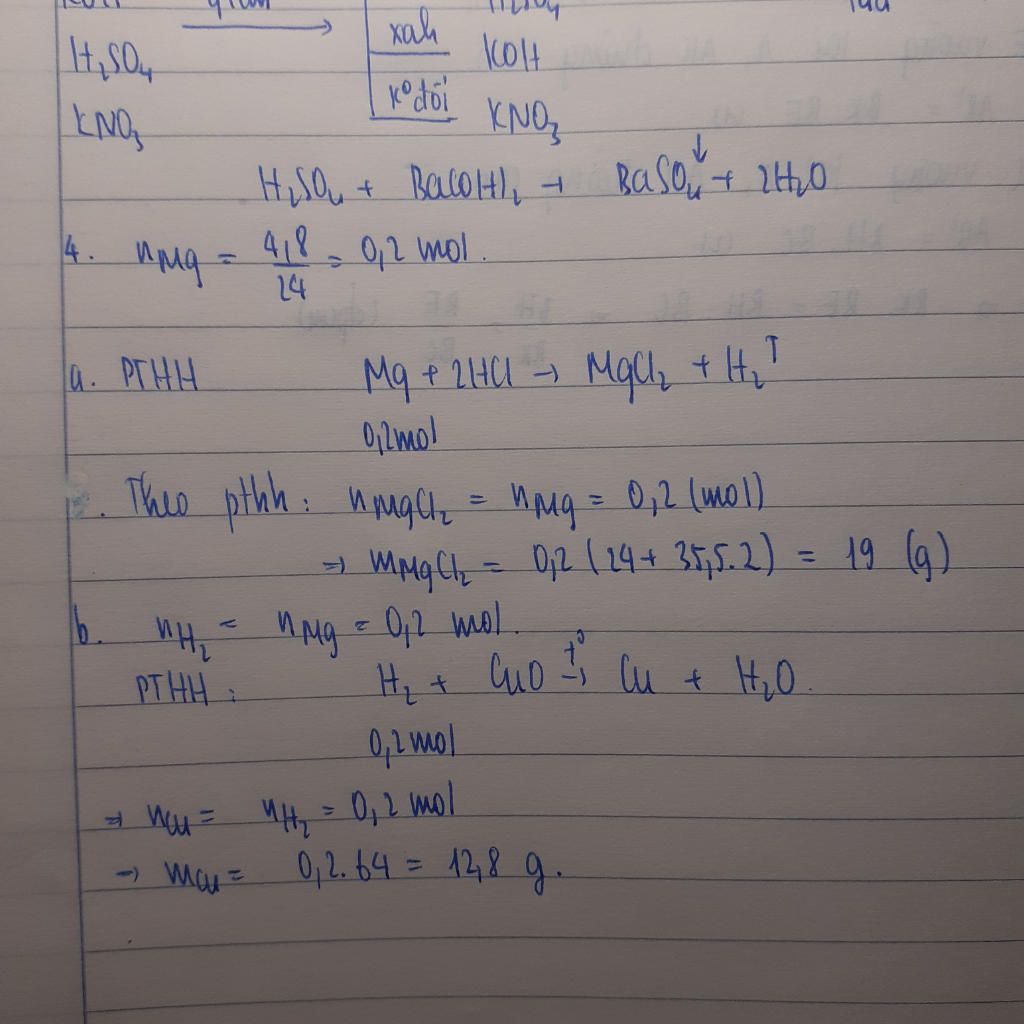 H₂SO₄ xanh KOH
KNO₃ k° đổi KNO₃
H₂SO₄ + Ba(OH)₂ → BaSO₄↓ + 2H₂O
4. nMg = 4,8/24 = 0,2 mol.
a. PTHH Mg + 2HCl → MgCl₂ + H₂↑
0,2mol
. Theo pthh: nMgCl₂ = nMg = 0,2 (mol)
⇒ mMgCl₂ = 0,2 (24 + 35,5.2) = 19 (g)
b. nH₂ = nMg = 0,2 mol.
PTHH: H₂ + CuO t°→ Cu + H₂O.
0,2mol
⇒ nCu = nH₂ = 0,2 mol
→ mCu = 0,2.64 = 12,8 g.